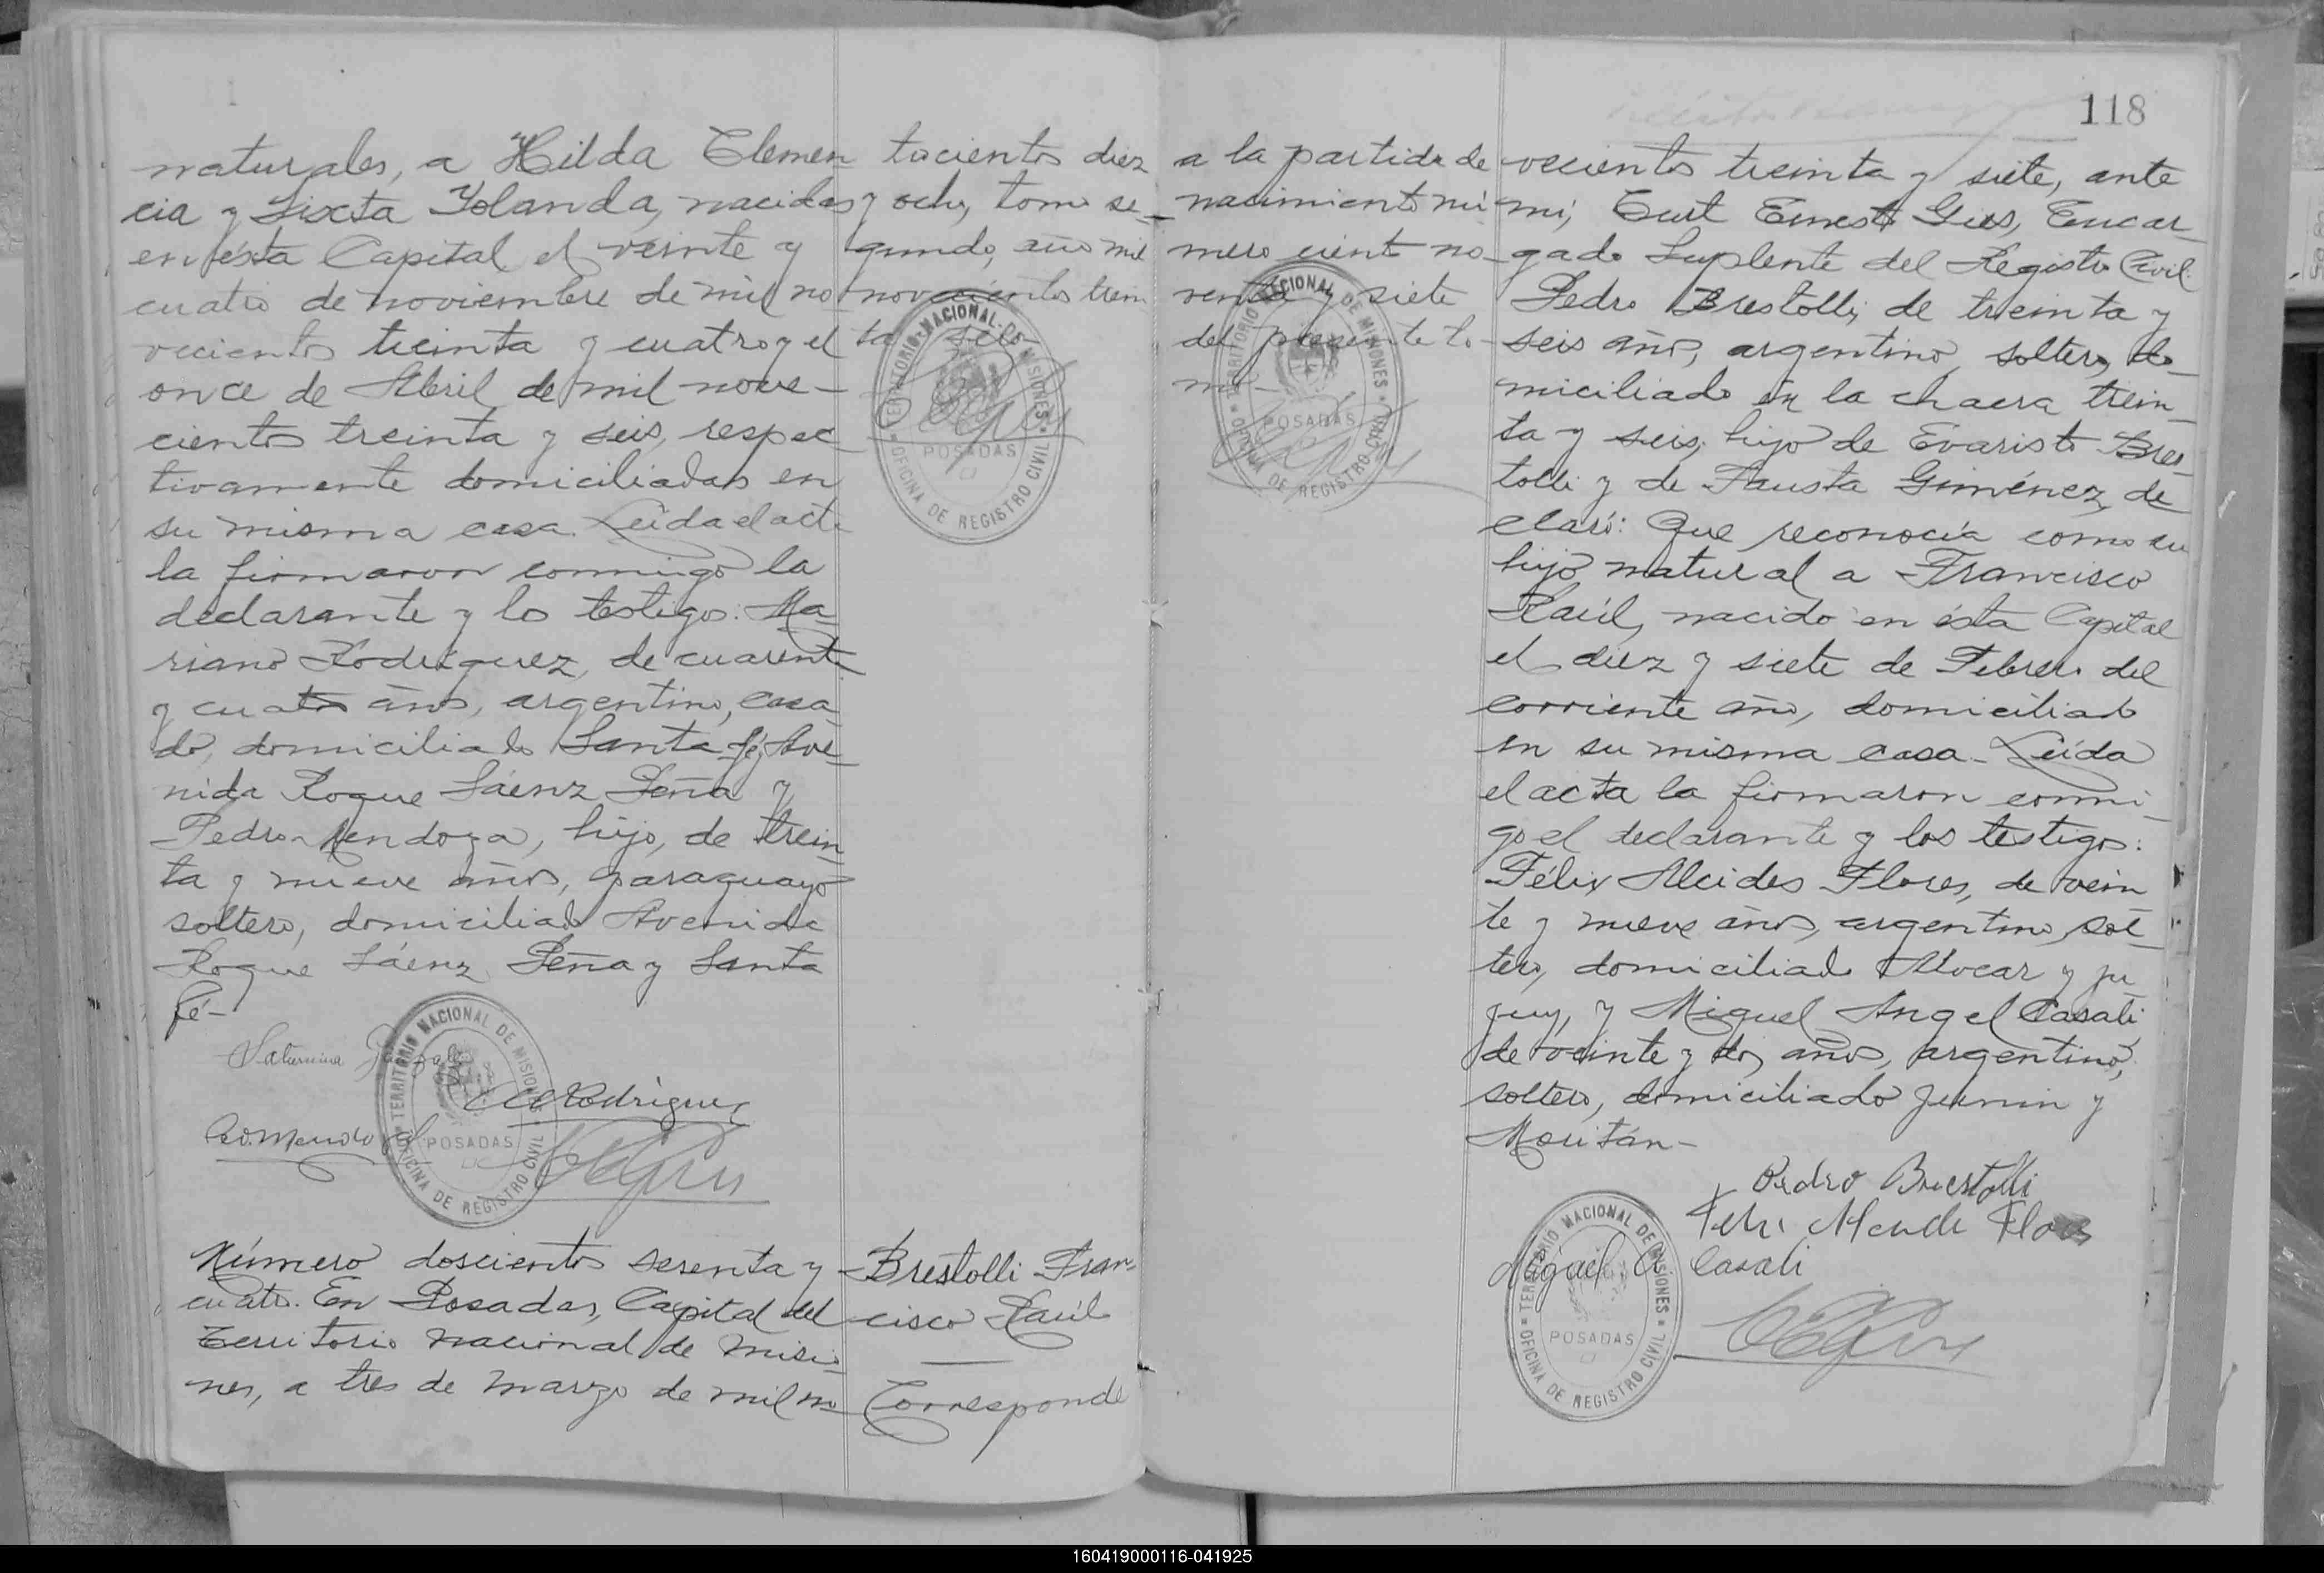 naturales, a Hilda Clemen
cia y Sixta Yolanda, nacidas
en ésta Capital el veinte y
cuatro de noviembre de mil no
vecientos treinta y cuatro y el
once de Abril de mil nove-
cientos treinta y seis, respec
tivamente domiciliadas en
su misma casa. Leída el acta
la firmaron conmigo la
declarante y los testigos: Ma-
riano Rodríguez, de cuarenta
y cuatro años, argentino, casa-
do, domiciliado Santa Fé y Ave-
nida Roque Sáenz Peña y
Pedro Mendoza, hijo, de trein-
ta y nueve años, paraguayo
soltero, domiciliado Avenida
Roque Sáenz Peña y Santa
Fé-
Saturnina
M Rodriguez
TERRITORIO NACIONAL DE MISIONES
POSADAS
OFICINA DE REGISTRO CIVIL
Número doscientos sesenta y
cuatro. En Posadas, Capital del
Territorio Nacional de Misio-
nes, a tres de marzo de mil no
tocientos diez
y ocho, tomo se-
gundo, año mil
novecientos trein
ta y seis
TERRITORIO NACIONAL DE MISIONES
POSADAS
OFICINA DE REGISTRO CIVIL
Brestolli Fran-
cisco Raúl
Corresponde
118
a la partida de
nacimiento nú-
mero ciento no-
venta y siete
del presente to-
mo-
TERRITORIO NACIONAL DE MISIONES
POSADAS
OFICINA DE REGISTRO CIVIL
vecientos treinta y siete, ante
mí, Curt Ernesto Gies, Encar-
gado Suplente del Registro Civil
Pedro Brestolli, de treinta y
seis años, argentino, soltero, do-
miciliado en la chacra trein-
ta y seis, hijo de Evaristo Bres-
tolli y de Fausta Giménez, de
claró: Que reconocía como su
hijo natural a Francisco
Raúl, nacido en ésta Capital
el diez y siete de Febrero del
corriente año, domiciliado
en su misma casa- Leída
el acta la firmaron conmi-
go el declarante y los testigos:
Félix Alcides Flores, de vein
te y nueve años, argentino, sol-
tero, domiciliado Alvear y Ju
juy, y Miguel Angel Casali
de veinte y dos años, argentino,
soltero, domiciliado Junin y
Moritán-
Pedro Brestolli
Miguel A Casali
TERRITORIO NACIONAL DE MISIONES
POSADAS
OFICINA DE REGISTRO CIVIL
160419000116-041925